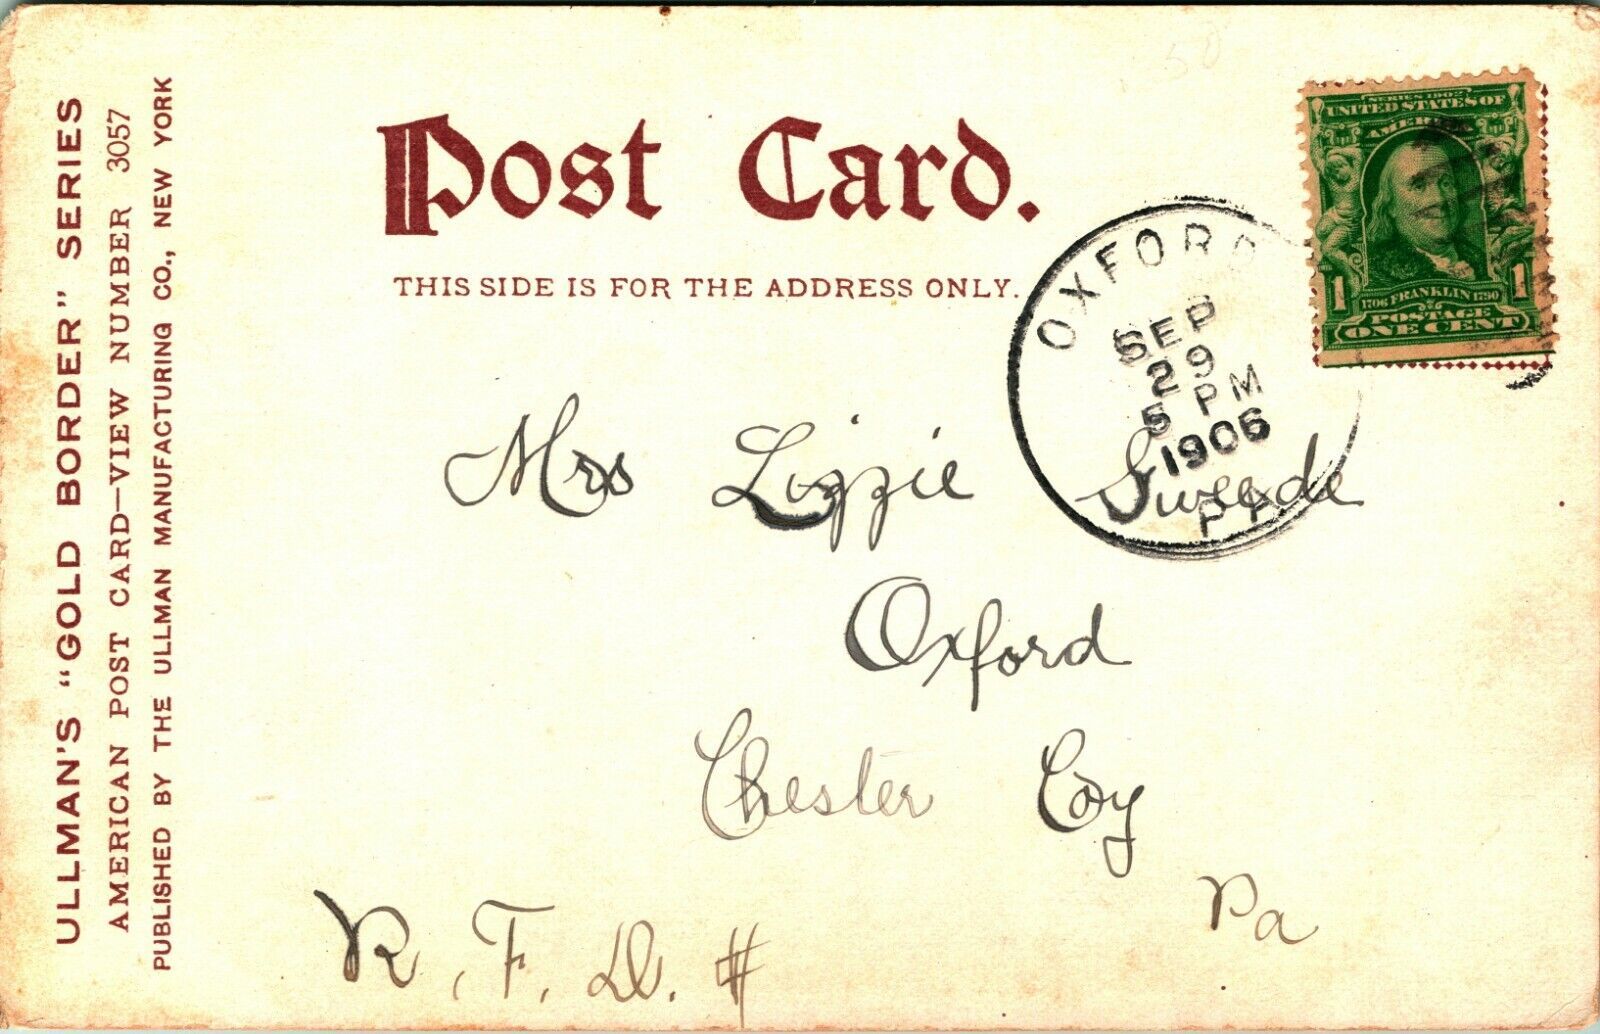 ULLMAN'S "GOLD BORDER" SERIES
AMERICAN POST CARD—VIEW NUMBER 3057
PUBLISHED BY THE ULLMAN MANUFACTURING CO., NEW YORK
50
Post Card.
THIS SIDE IS FOR THE ADDRESS ONLY.
SERIES 1902
UNITED STATES OF
AMERICA
1 1
1706 FRANKLIN 1790
POSTAGE
ONE CENT
OXFORD
SEP
29
5 PM
1906
PA
Mrs Lizzie Sweede
Oxford
Chester Coy
Pa
R. F. D. #